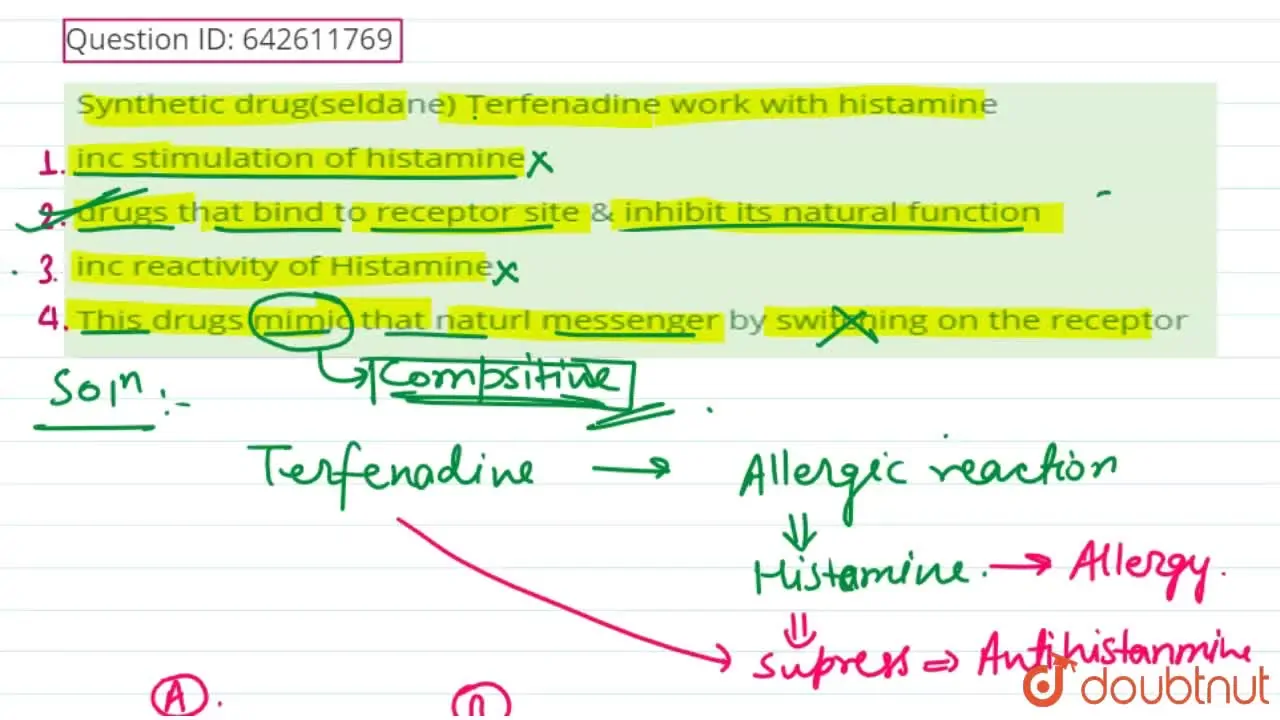 Question ID: 642611769
Synthetic drug(seldane) Terfenadine work with histamine
1. inc stimulation of histamine x
2. drugs that bind to receptor site & inhibit its natural function
3. inc reactivity of Histamine x
4. This drugs mimic that naturl messenger by switching on the receptor
Compsitive
Solⁿ :-
Terfenadine → Allergic reaction
⇓
Histamine. → Allergy.
⇓
Supress ⇒ Antihistanmine
A.
doubtnut